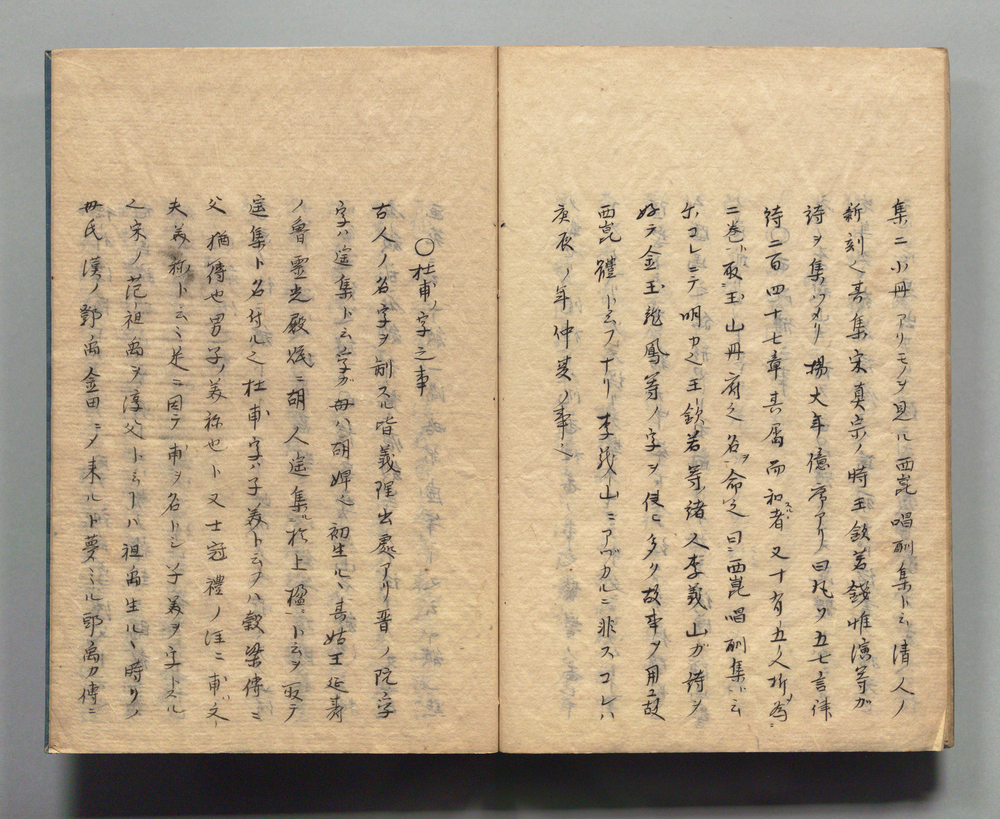 集ニ小丹アリモノヲ見ル西崑唱酬集ト云清人ノ
新刻也其集宋真宗ノ時王欽若錢惟演等ガ
詩ヲ集ツメリ楊大年億序アリ曰凡ソ五七言律
詩二百四十七章其属而和者又十有五人析為
二巻取玉山丹府之名ヲ命之曰西崑唱酬集ト云
尓コレニテ明カ也王欽若等諸人李義山ガ詩ヲ
好テ金玉龍鳳等ノ字ヲ使ヒ多ク故事ヲ用ユ故
西崑體ト云フナリ李義山ニアヅカルニ非スコレハ
庚辰ノ年仲夏ノ事也
○杜甫ノ字之事
古人ノ名字ヲ制スル皆義理出處アリ晋ノ阮字
字ハ遥集ト云字ガ母ハ胡婢也初生ルヽ其姑王延壽
ノ魯靈光殿賦ニ胡人遥集ル於上楹ニト云ヲ取テ
遥集ト名付ル也杜甫字ハ子美ト云ヲハ穀梁傳ニ
父猶傅也男子ノ美称也ト又士冠禮ノ注ニ甫ハ丈
夫美称ト云ニ是ニ因テ甫ヲ名トシ子美ヲ字トスル
也宋ノ范祖禹ヲ淳父ト云ーハ祖禹生ルヽ時リノ
母氏漢ノ鄧禹金田ニノ来ルト夢ミル鄧禹カ傳ニ